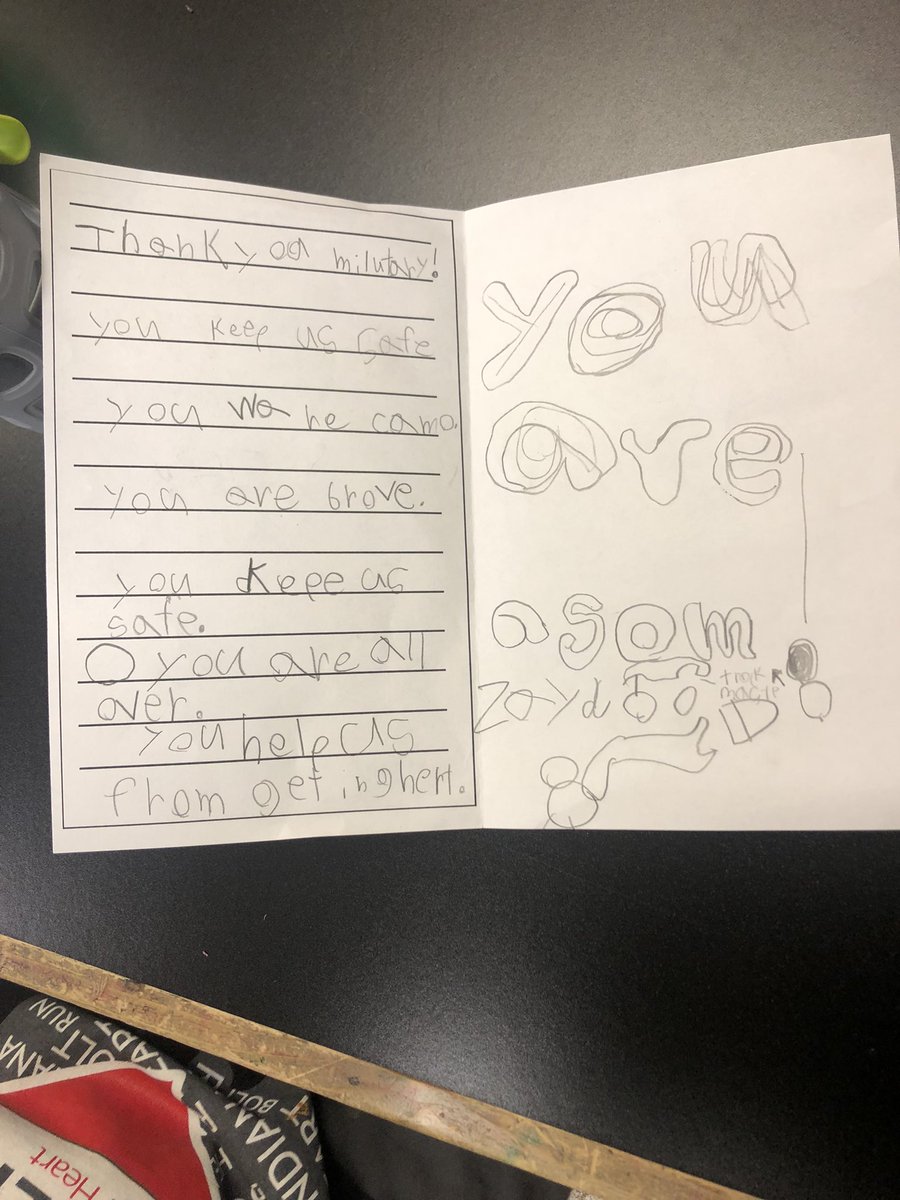 Thank you milutary!
you keep us safe
you Wa he camo.
you are brave.
you Kepe us
safe.
you are all
over.
You help us
fhom get ing hert.
you
are
asom
Zayd
D
INDIANA
BOLT
RUN
Heart